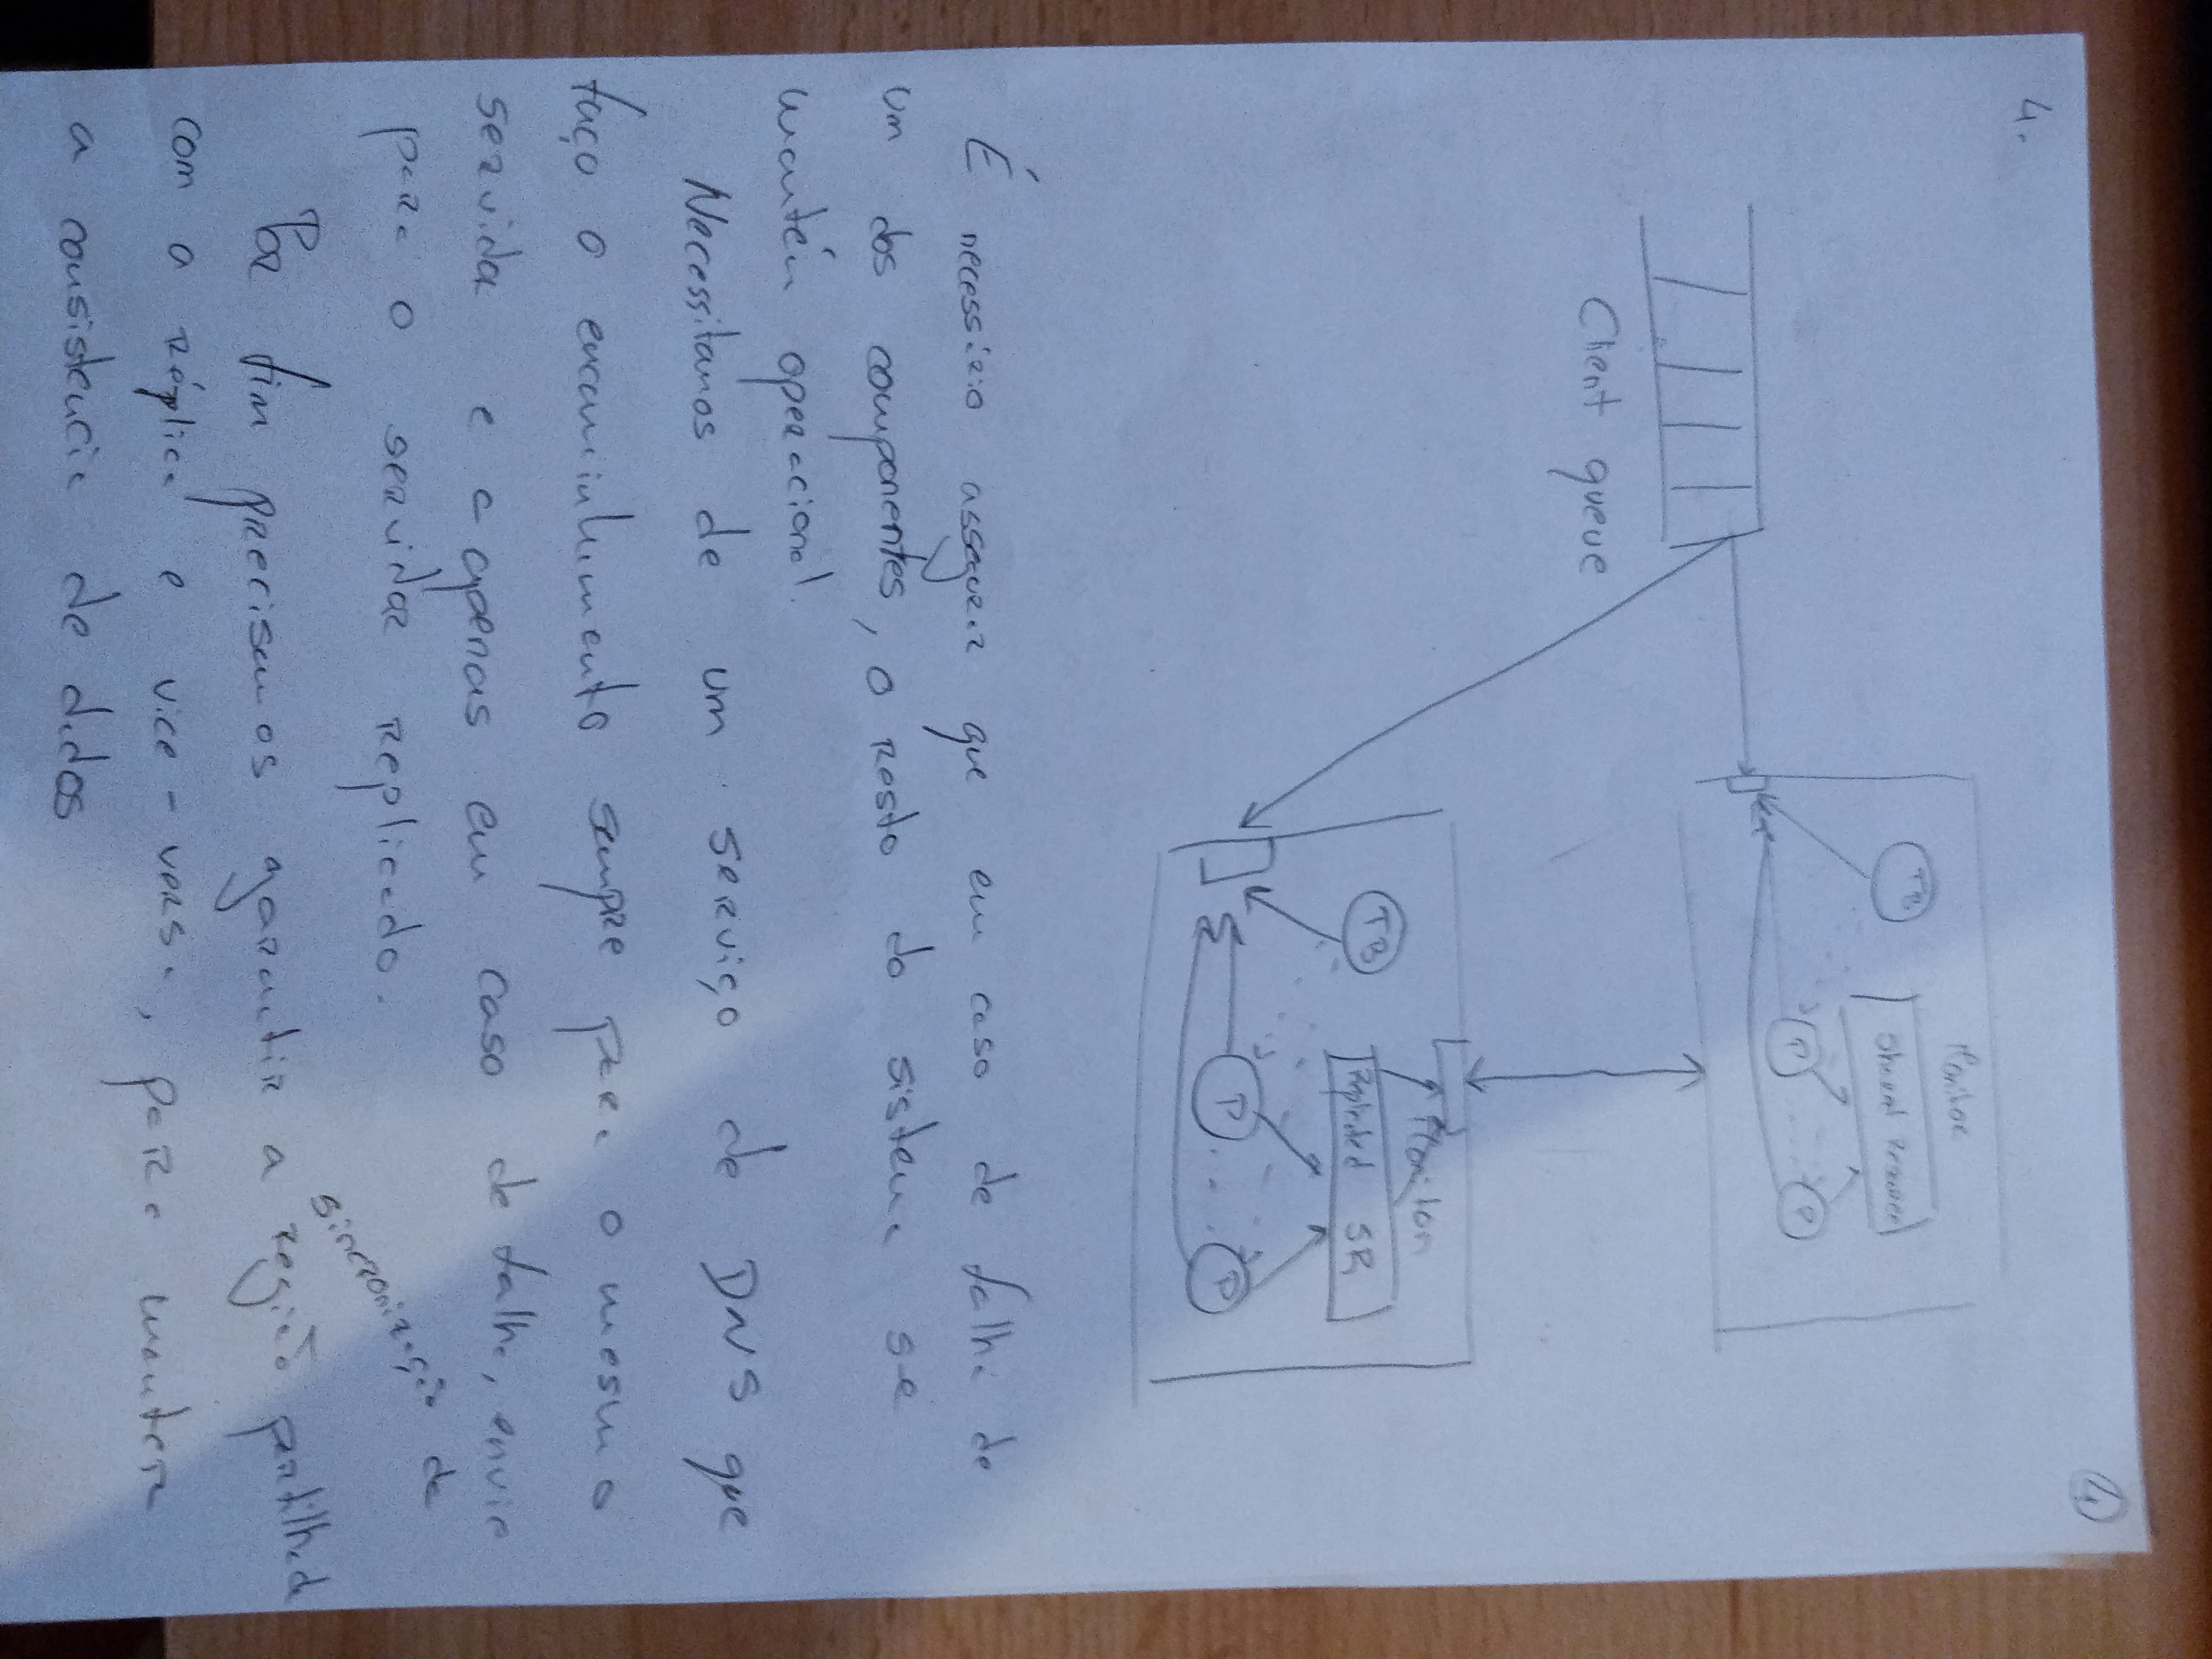 4.
4
Monitor
TB
Shared Resource
P
P
Client queue
Monitor
TB
Replicated SR
P
P
É necessário assegurar que em caso de falha de
um dos componentes, o resto do sistema se
mantén operacional.
Necessitamos de um serviço de DNS que
faço o encaminhamento sempre para o mesmo
servidor e a apenas em caso de falha, envie
para o servidor replicado.
sincronização da
Por fim precisamos garantir a região partilhada
com a réplica e vice-versa, para manter
a consistencia de dados